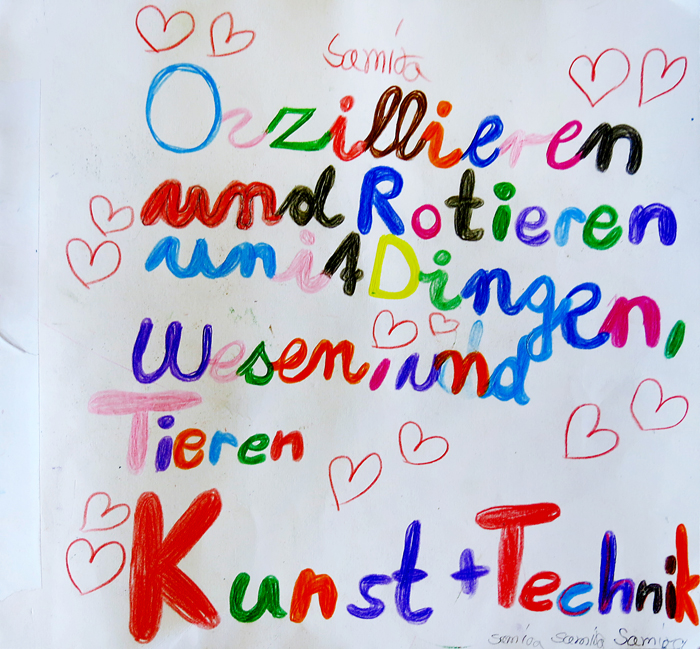 Samira
Oszillieren
und Rotieren
mit Dingen,
Wesen, und
Tieren
Kunst + Technik
Samira Samira Samira